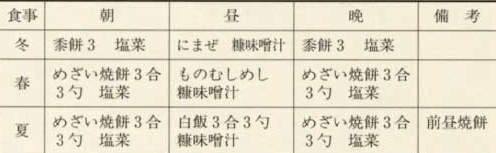 食事 朝 昼 晩 備考
冬 黍餅3 塩菜 にまぜ 糠味噌汁 黍餅3 塩菜
春 めざい焼餅3合 ものむしめし めざい焼餅3合
3勺 塩菜 糠味噌汁 3勺 塩菜
夏 めざい焼餅3合 白飯3合3勺 めざい焼餅3合 前昼焼餅
3勺 塩菜 糠味噌汁 3勺 塩菜